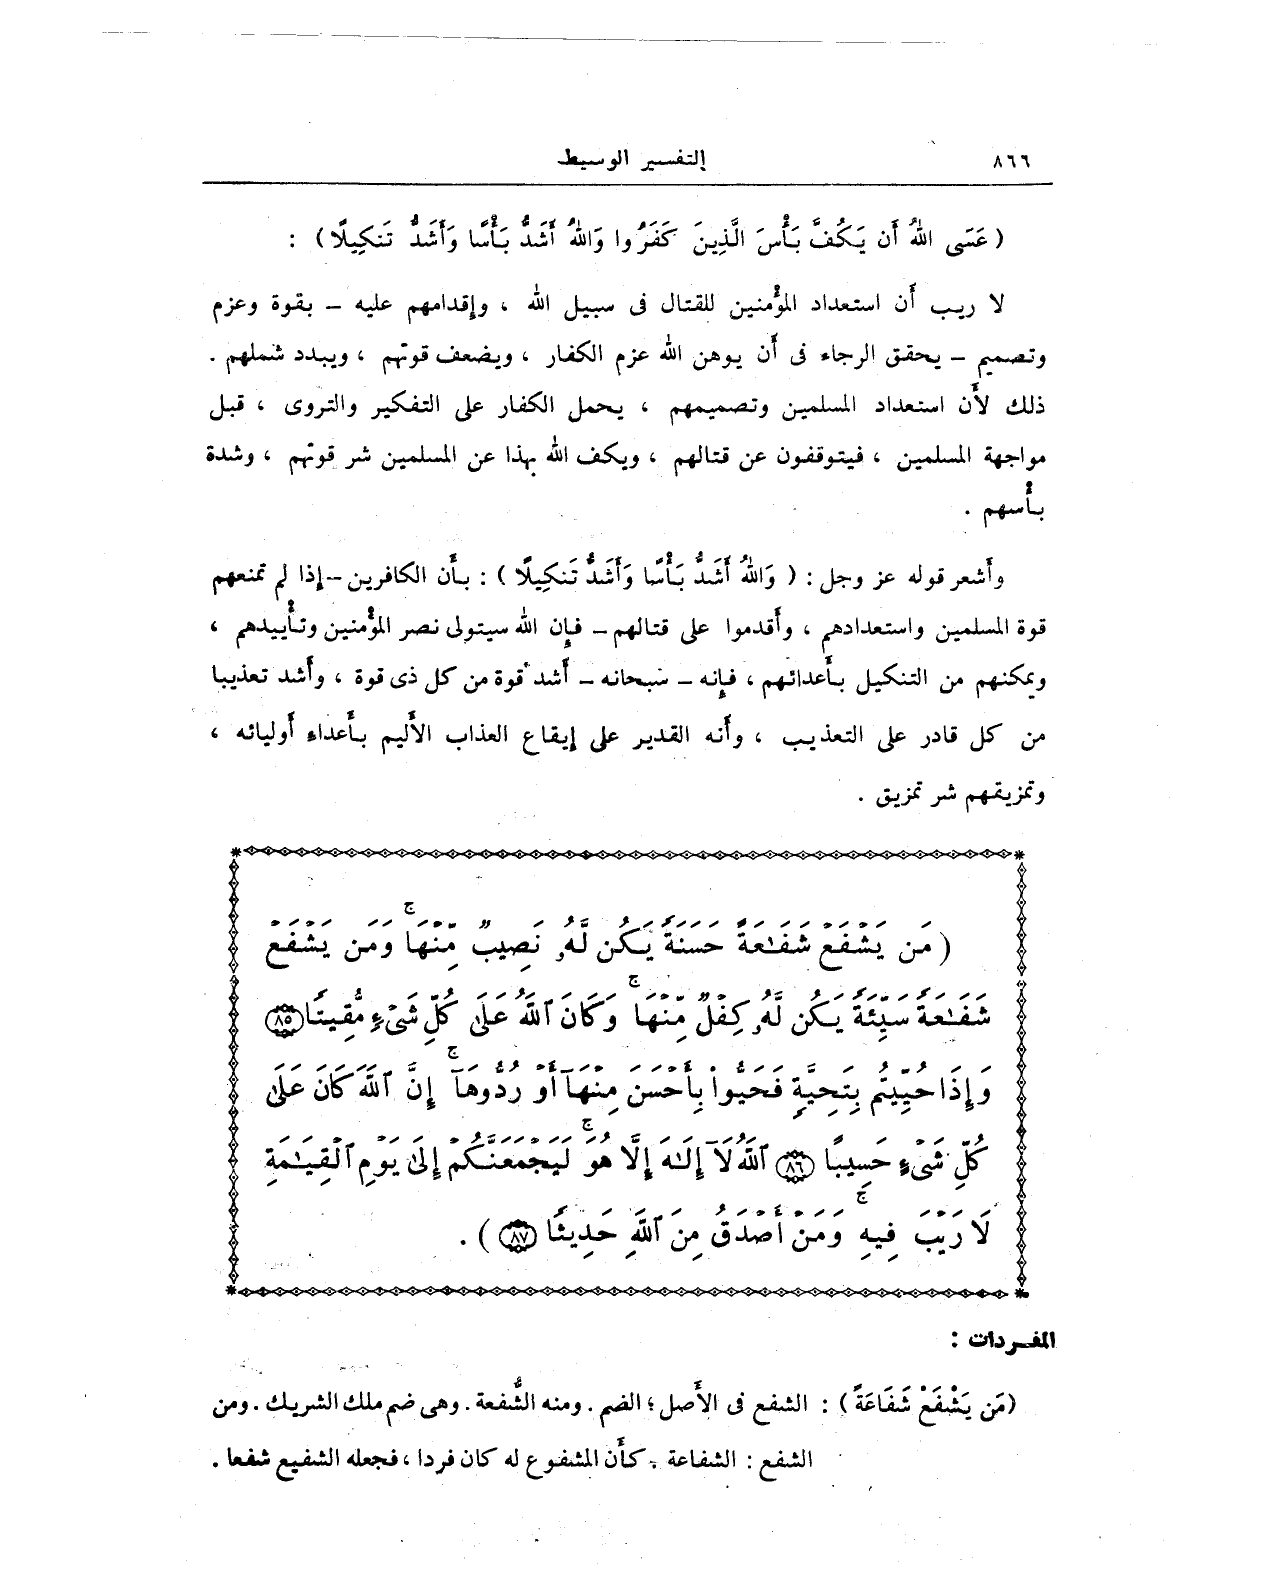 ٨٦٦
التفسير الوسيط
( عَسَى اللهُ أَن يَكُفَّ بَأْسَ الَّذِينَ كَفَرُوا وَاللهُ أَشَدُّ بَأْسًا وَأَشَدُّ تَنكِيلًا ) :
لا ريب أن استعداد المؤمنين للقتال فى سبيل الله ، وإقدامهم عليه – بقوة وعزم
وتصميم – يحقق الرجاء فى أن يوهن الله عزم الكفار ، ويضعف قوتهم ، ويبدد شملهم .
ذلك لأن استعداد المسلمين وتصميمهم ، يحمل الكفار على التفكير والتروى ، قبل
مواجهة المسلمين ، فيتوقفون عن قتالهم ، ويكف الله بهذا عن المسلمين شر قوتهم ، وشدة
بأسهم .
وأشعر قوله عز وجل : ( وَاللهُ أَشَدُّ بَأْسًا وَأَشَدُّ تَنكِيلًا ) : بأن الكافرين – إذا لم تمنعهم
قوة المسلمين واستعدادهم ، وأقدموا على قتالهم – فإن الله سيتولى نصر المؤمنين وتأييدهم ،
ويمكنهم من التنكيل بأعدائهم ، فإنه – سبحانه – أشد قوة من كل ذى قوة ، وأشد تعذيبا
من كل قادر على التعذيب ، وأنه القدير على إيقاع العذاب الأليم بأعداء أوليائه ،
وتمزيقهم شر تمزيق .
( مَّن يَشْفَعْ شَفَٰعَةً حَسَنَةً يَكُن لَّهُۥ نَصِيبٌ مِّنْهَا ۖ وَمَن يَشْفَعْ
شَفَٰعَةً سَيِّئَةً يَكُن لَّهُۥ كِفْلٌ مِّنْهَا ۗ وَكَانَ ٱللَّهُ عَلَىٰ كُلِّ شَىْءٍ مُّقِيتًا ٨٥
وَإِذَا حُيِّيتُم بِتَحِيَّةٍ فَحَيُّوا۟ بِأَحْسَنَ مِنْهَآ أَوْ رُدُّوهَآ ۗ إِنَّ ٱللَّهَ كَانَ عَلَىٰ
كُلِّ شَىْءٍ حَسِيبًا ٨٦ ٱللَّهُ لَآ إِلَٰهَ إِلَّا هُوَ ۚ لَيَجْمَعَنَّكُمْ إِلَىٰ يَوْمِ ٱلْقِيَٰمَةِ
لَا رَيْبَ فِيهِ ۗ وَمَنْ أَصْدَقُ مِنَ ٱللَّهِ حَدِيثًا ٨٧ ) .
المفردات :
( مَن يَشْفَعْ شَفَاعَةً ) : الشفع فى الأصل ؛ الضم . ومنه الشُّفعة . وهى ضم ملك الشريك . ومن
الشفع : الشفاعة . كأن المشفوع له كان فردا ، فجعله الشفيع شفعا .